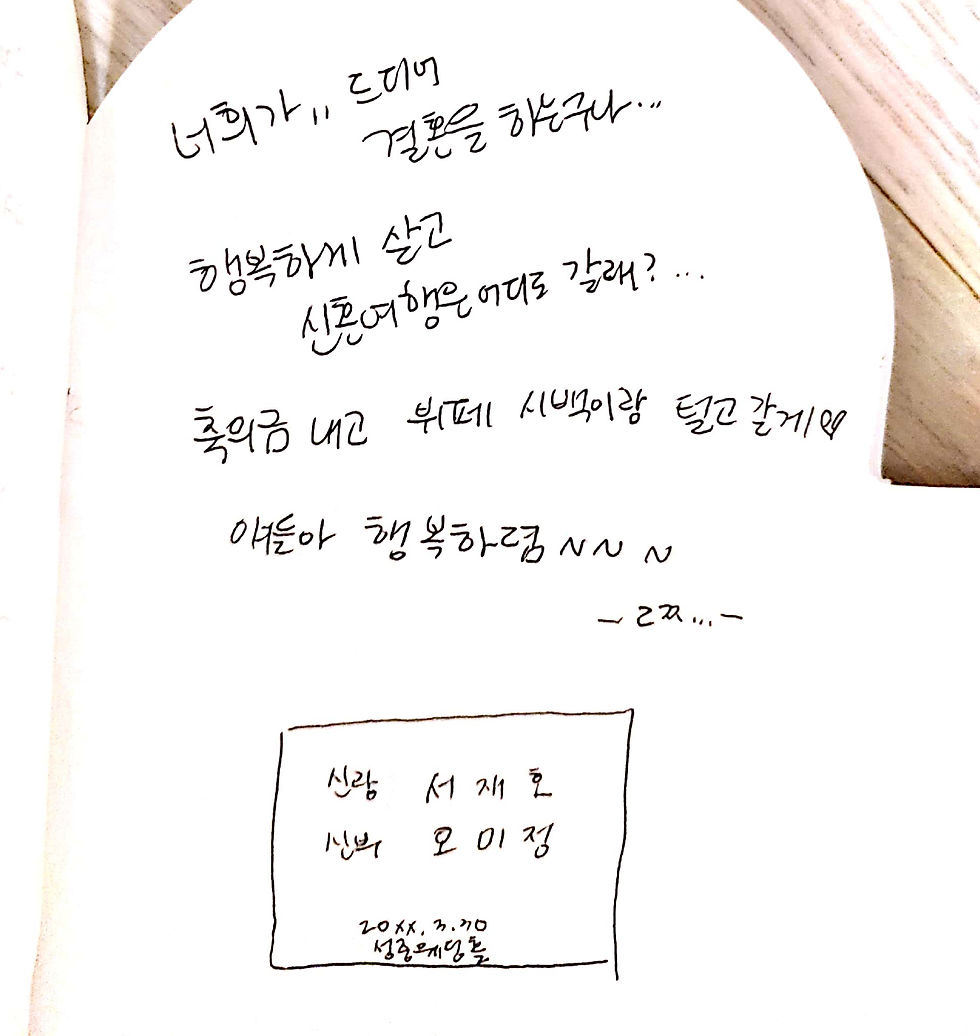 너희가,, 드디어
결혼을 하는구나...
행복하게 살고
신혼여행은 어디로 갈래?...
축의금 내고 뷔페 시백이랑 털고 갈게!♡
얘들아 행복하렴~~~
-ㄹㅉ...-
신랑 서재호
신부 오미정
20xx.3.30
성중웨딩홀